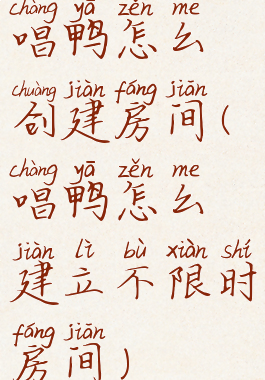 chàng yā zěn me
唱鸭怎么
chuàng jiàn fáng jiān
创建房间(
chàng yā zěn me
唱鸭怎么
jiàn lì bù xiàn shí
建立不限时
fáng jiān
房间)